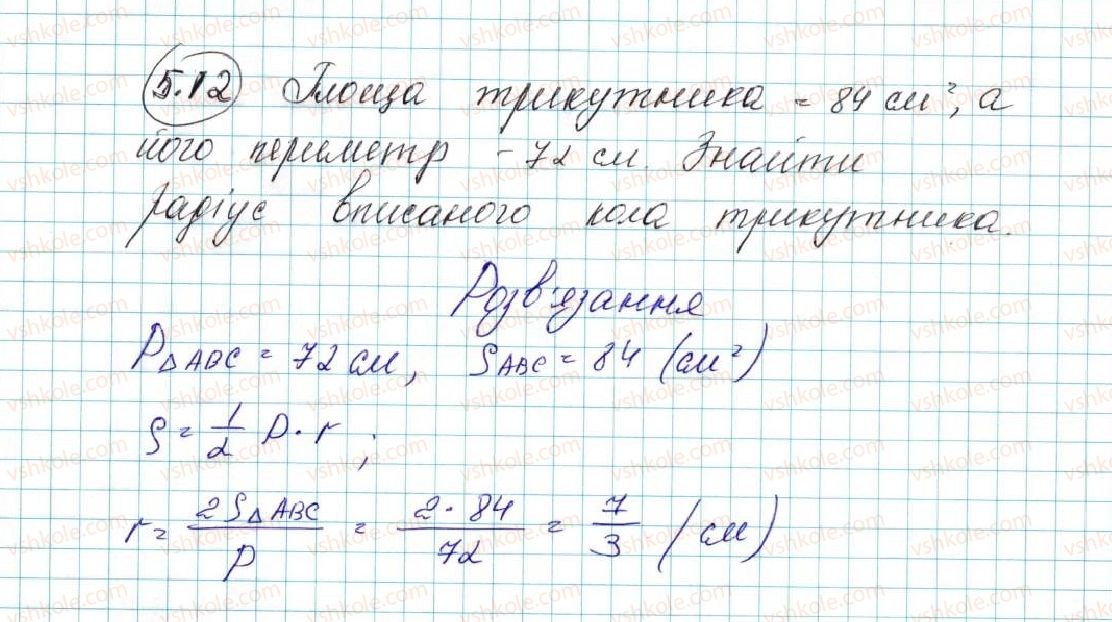 5.12 Площа трикутника = 84 см², а
його периметр - 72 см. Знайти
радіус вписаного кола трикутника.
Розв'язання
P△ABC = 72 см, SABC = 84 (см²)
S = 1/2 P · r ;
r = 2S△ABC/P = 2·84/72 = 7/3 (см)